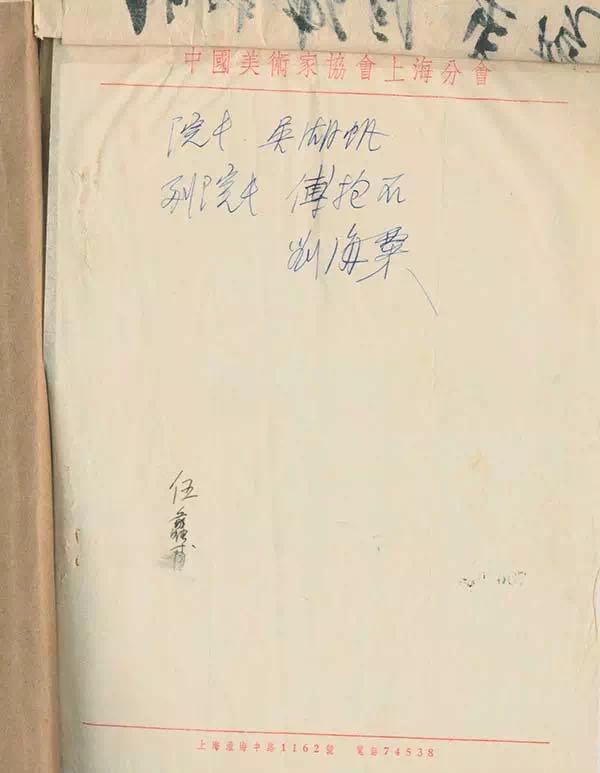 中國美術家協會上海分會
院长 吴湖帆
副院长 傅抱石
刘海粟
伍
蠡
甫
上海淮海中路1162號 電話74538